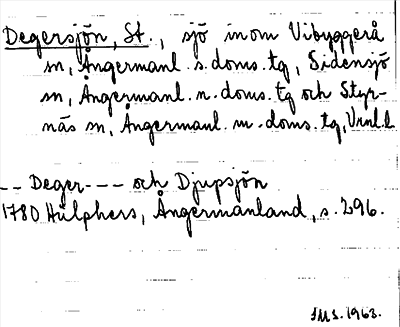 Degersjön, St., sjö inom Vibyggerå
sn, Ångermanl. s. doms. tg, Sidensjö
sn, Ångermanl. n. doms. tg och Styr-
näs sn, Ångermanl. m. doms. tg, Vnl.l.
-- Deger --- och Djupsjön
1780 Hülphers, Ångermanland, s. 296.
1963.